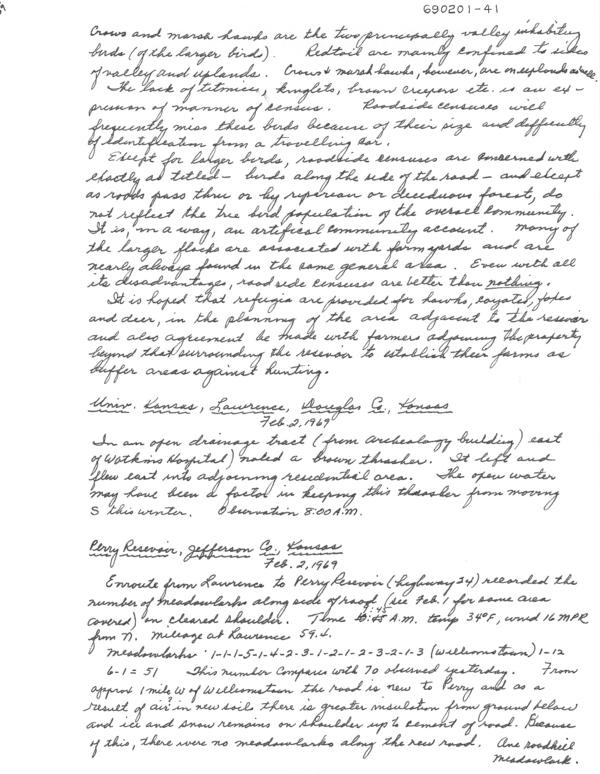 690201-41
Crows and marsh hawks are the two principally valley inhabiting
birds (of the larger bird). Redtail are mainly confined to sides
of valley and uplands. Crows & marsh hawks, however, are on uplands as well.
The lack of titmice, kinglets, brown creepers etc. is an ex-
pression of manner of census. Roadside censuses will
frequently miss these birds because of their size and difficulty
of identification from a travelling car.
Except for larger birds, roadside censuses are concerned with
exactly as titled - birds along the side of the road - and except
as roads pass thru or by riparian or deciduous forest, do
not reflect the true bird population of the overall community.
It is, in a way, an artifical community account. Many of
the larger flocks are associated with farm yards and are
nearly always found in the same general area. Even with all
its disadvantages, road side censuses are better than nothing.
It is hoped that refugia are provided for hawks, coyotes, foxes
and deer, in the planning of the area adjacent to the resevoir
and also agreement be made with farmers adjoining the property
beyond that surrounding the resevoir to establish their farms as
buffer areas against hunting.
Univ. Kansas, Lawrence, Douglas Co., Kansas
Feb. 2, 1969
In an open drainage tract (from archeology building) east
of Watkins Hospital) noted a brown thrasher. It left and
flew east into adjoining residential area. The open water
may have been a factor in keeping this thrasher from moving
S this winter. Observation 8:00 A.M.
Perry Resevoir, Jefferson Co., Kansas
Feb. 2, 1969
Enroute from Lawrence to Perry Resevoir (highway 24) recorded the
number of meadowlarks along side of road (see Feb. 1 for same area
covered) on cleared shoulder. Time 9:45 A.M. temp 34°F, wind 16 MPR
from N. mileage at Lawrence 59.4.
Meadowlarks 1-1-1-5-1-4-2-3-1-2-1-2-3-2-1-3 (Williamstown) 1-12
6-1 = 51 This number compares with 70 observed yesterday. From
approx 1 mile W of Williamstown the road is new to Perry and as a
result of air in new soil there is greater insulation from ground below
and ice and snow remains on shoulder up to cement of road. Because
of this, there were no meadowlarks along the new road. One roadkill
Meadowlark.